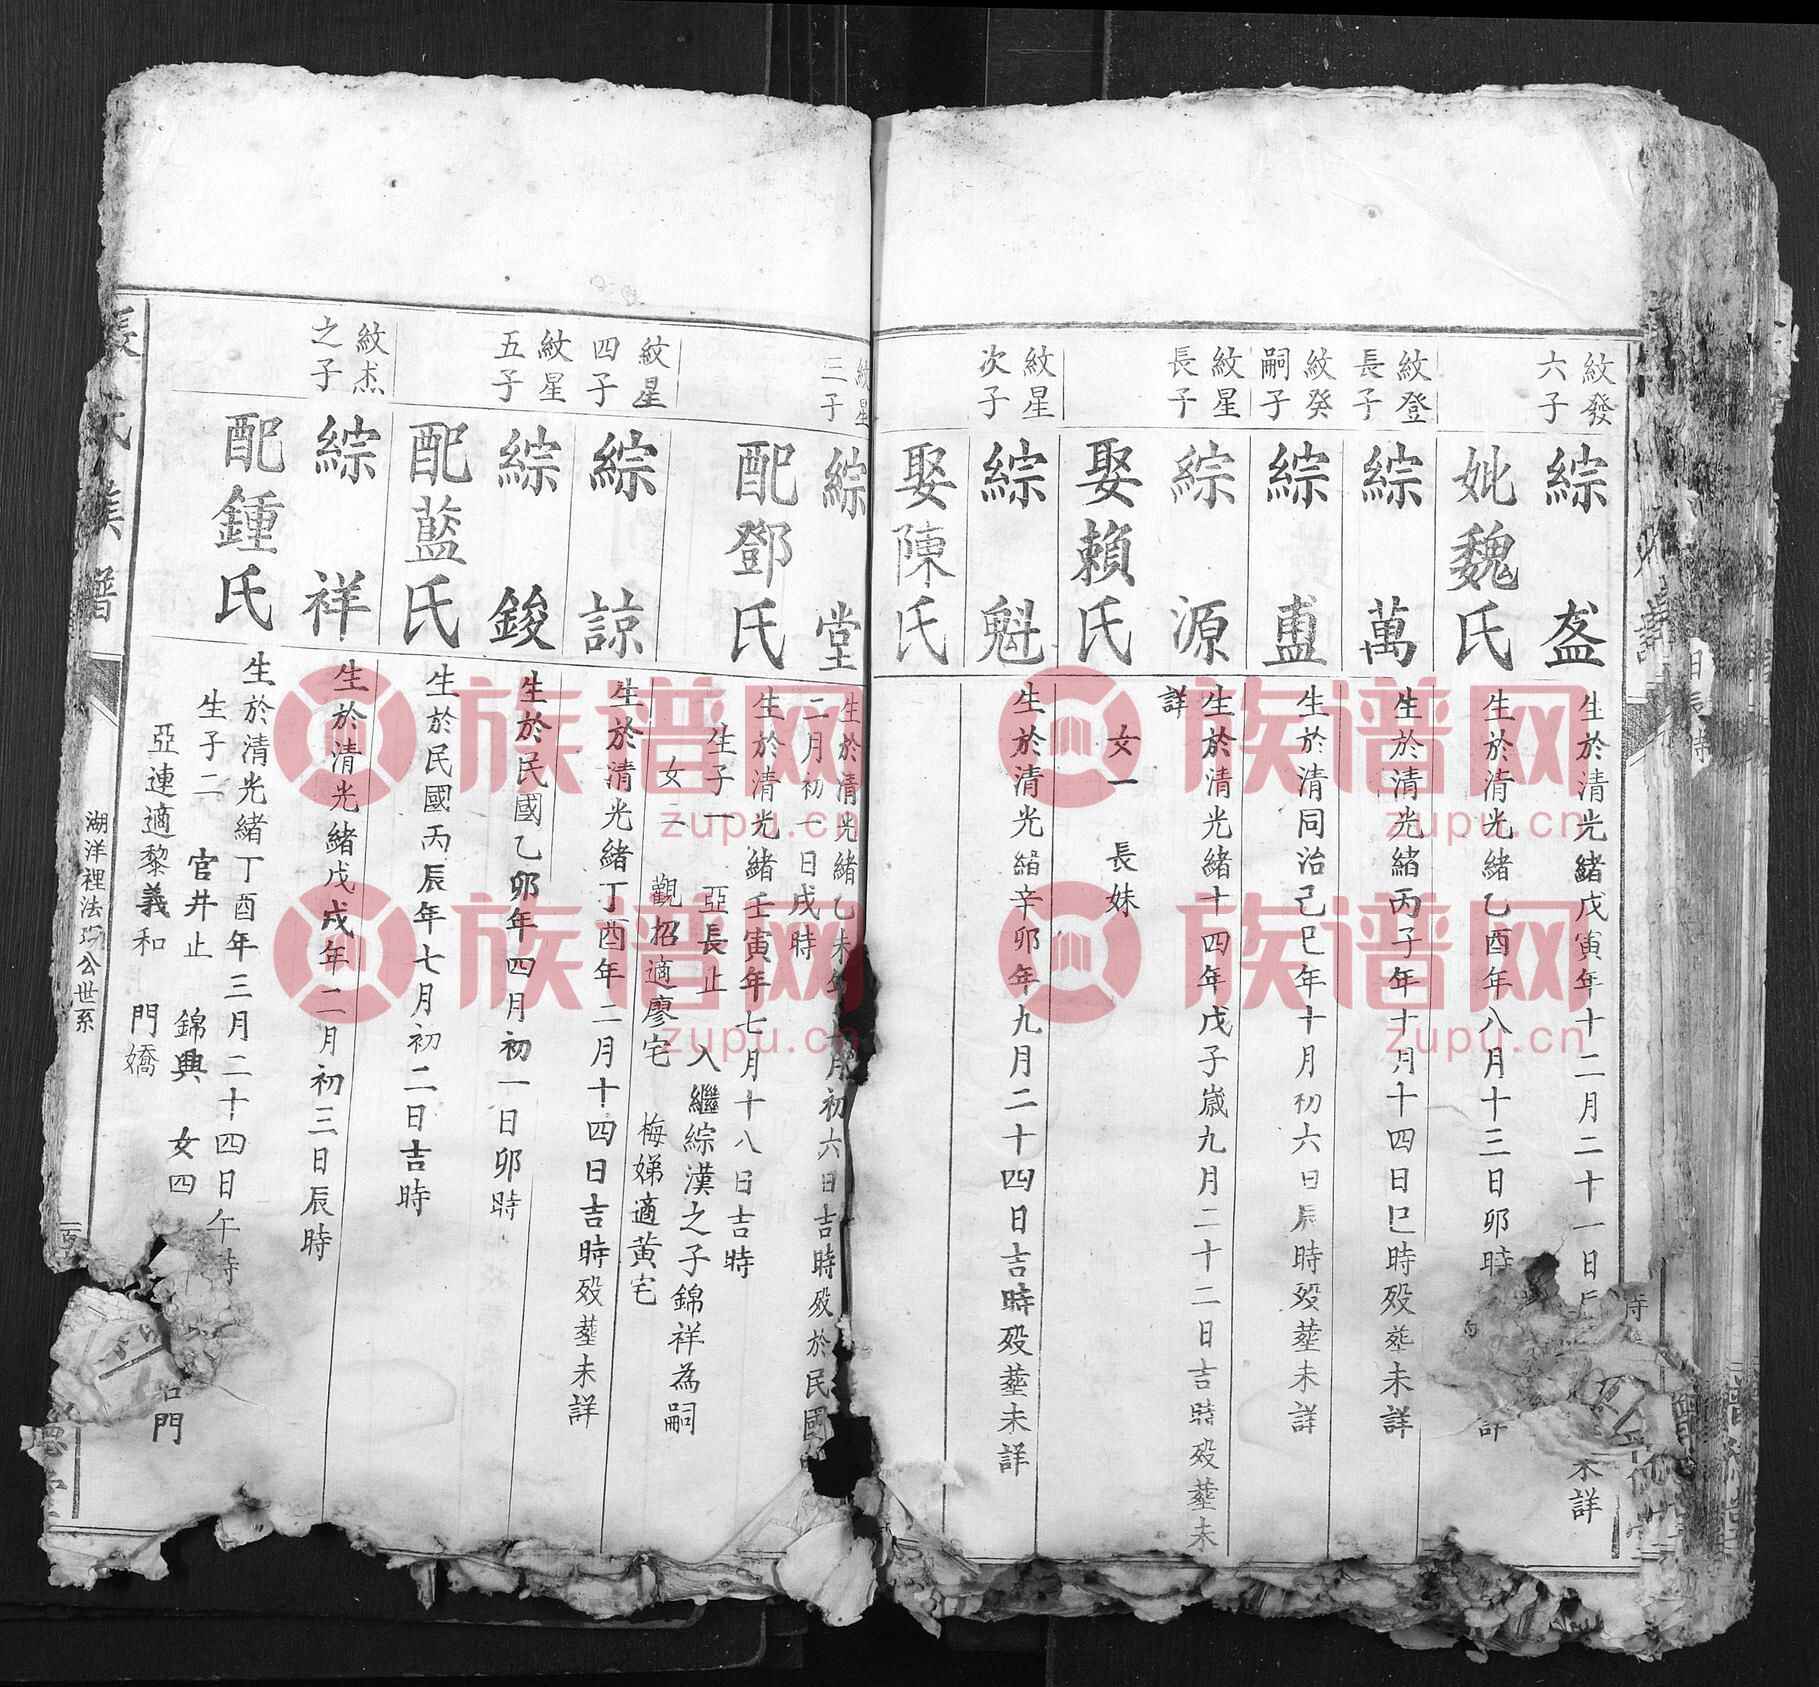 紋發
六子
綜盔
生於清光緒戊寅年十二月二十一日
未詳
妣魏氏
生於清光緒乙酉年八月十三日卯時
紋登
長子
綜萬
生於清光緒丙子年十月十四日巳時殁塟未詳
紋癸
嗣子
綜
生於清同治己巳年十月初六日辰時殁塟未詳
紋星
長子
綜源
生於清光緒十四年戊子歲九月二十二日吉時殁塟未
詳
娶賴氏
女一 長妹
紋星
次子
綜魁
生於清光緒辛卯年九月二十四日吉時殁塟未詳
娶陳氏
紋星
三子
綜堂
生於清光緒乙未年 月初六日吉時殁於民國
二月初一日戌時
配鄧氏
生於清光緒壬寅年七月十八日吉時
生子一 亞長止 入繼綜漢之子錦祥為嗣
女二 觀招適廖宅 梅娣適黃宅
紋星
四子
綜諒
生於清光緒丁酉年二月十四日吉時殁塟未詳
紋星
五子
綜鋑
生於民國乙卯年四月初一日卯時
配藍氏
生於民國丙辰年七月初二日吉時
紋杰
之子
綜祥
生於清光緒戊戌年二月初三日辰時
配鍾氏
生於清光緒丁酉年三月二十四日午時
生子二 官井止 錦興 女四
亞連適黎義和 門嬌
門
氏族譜
湖洋裡法 公世系
族谱网
zupu.cn
族谱网
zupu.cn
族谱网
zupu.cn
族谱网
zupu.cn